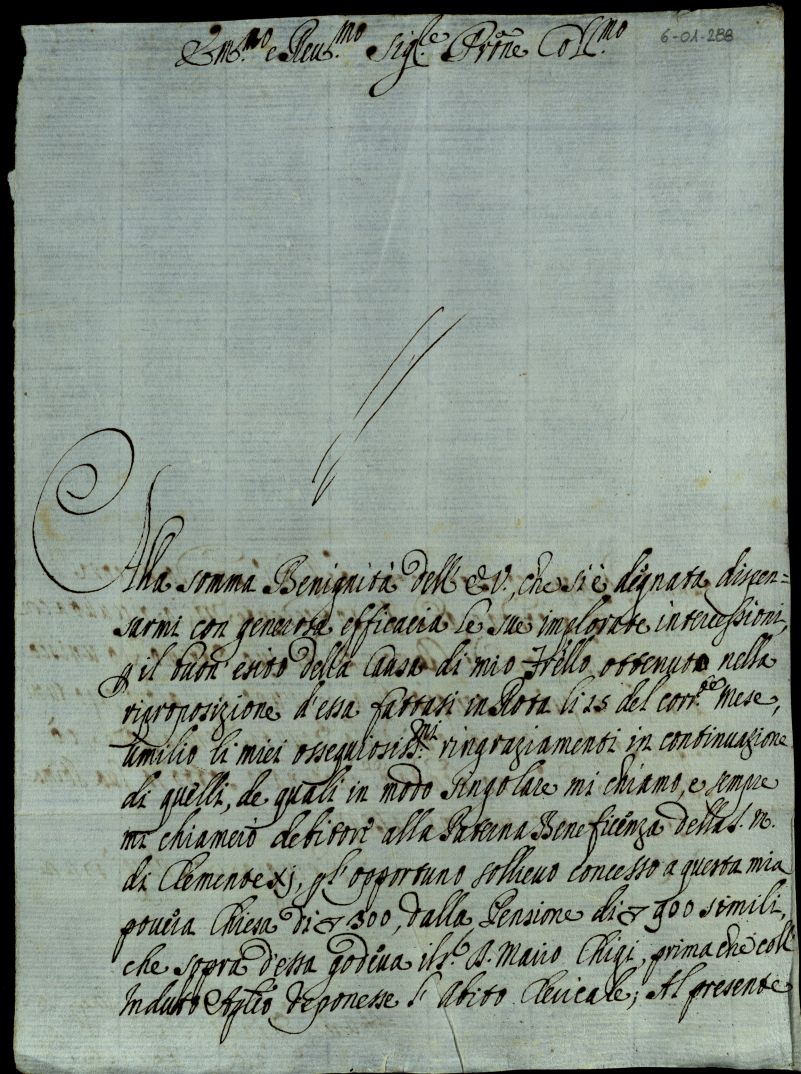 Em.mo e Reu.mo Sig.re Prõne Col.mo
6-01-288
Alla somma Benignità dell'E.V., che si è degnata dispen=
sarmi con generosa efficacia le sue implorate intercessioni,
p il buon' esito della Causa di mio Frẽllo ottenuto nella
riproposizione d'essa fattasi in Rota li 25 del corr.te Mese,
umilio li miei ossequiosiss.mi ringraziamenti in continuazione
di quelli, de quali in modo singolare mi chiamo, e sempre
mi chiamerò debitore alla Paterna Beneficenza della S. M.
di Clemente XJ, p l'opportuno sollieuo concesso a questa mia
pouera Chiesa di 300, dalla Pensione di 900 simili,
che sopra d'essa godeua il S.r D. Mario Chigi, prima che coll'
Indulto Aplĩco deponesse l'Abito Clericale; Al presente